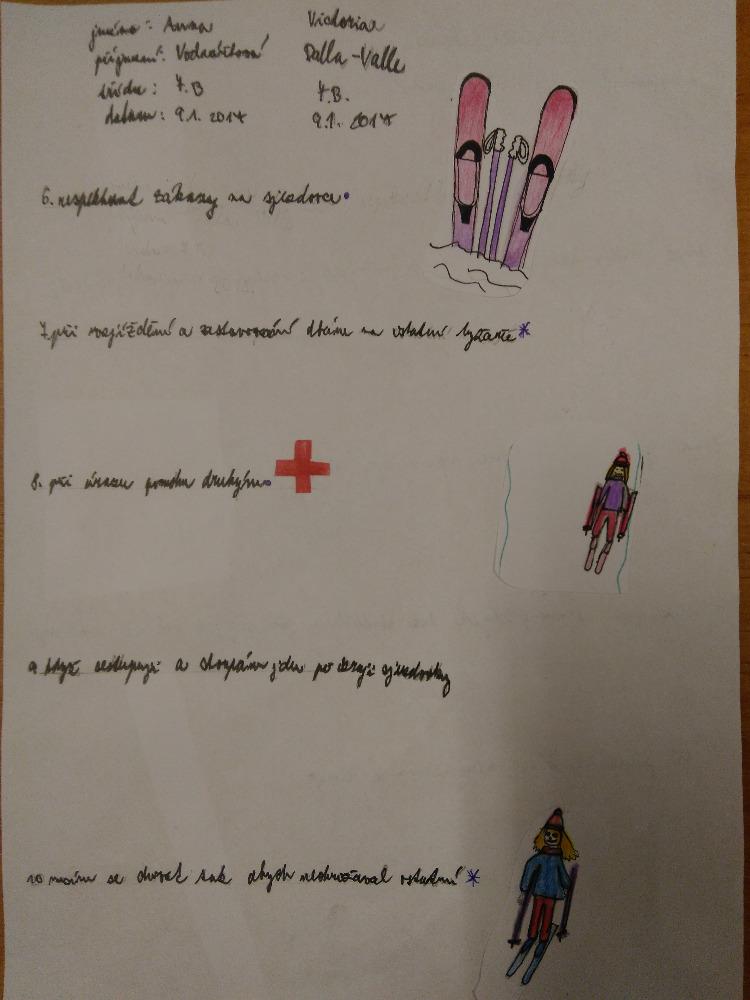 jméno: Anna Victoria
příjmení: Dalla-Valle
třída: 7.B 7.B.
datum: 9.1. 2017 9.1. 2017
6. respektovat zákazy na sjezdovce.
7. při rozjíždění a zastavování dbáme na ostatní lyžaře*
8. při úrazu pomohu druhým.
9 když sestupuji a stoupám jdu po kraji sjezdovky
10 musím se chovat tak abych neohrožoval ostatní*